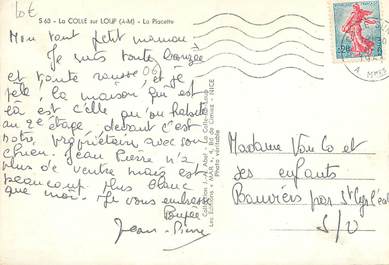 10€
S 63 - La COLLE sur LOUP (A-M) - La Placette
Mon tant petit maman
Je suis toute bronzée
et toute rousse 06) et je
pète! la maison qui est
là est celle qu'on habite
au 2e étage, devant c'est
notre propriétaire avec son
chien. Jean Pierre n'a
plus de ventre mais est
beaucoup plus blanc
que moi. Je vous embrasse
Poupée
Jean-Pierre
Collection J.-N Abel - La Colle-sur-Loup
Les Editions « MAR », 4, Bd de Cimiez - NICE
Photo véritable
Madame et
ses enfants
par St Cyr
S/O